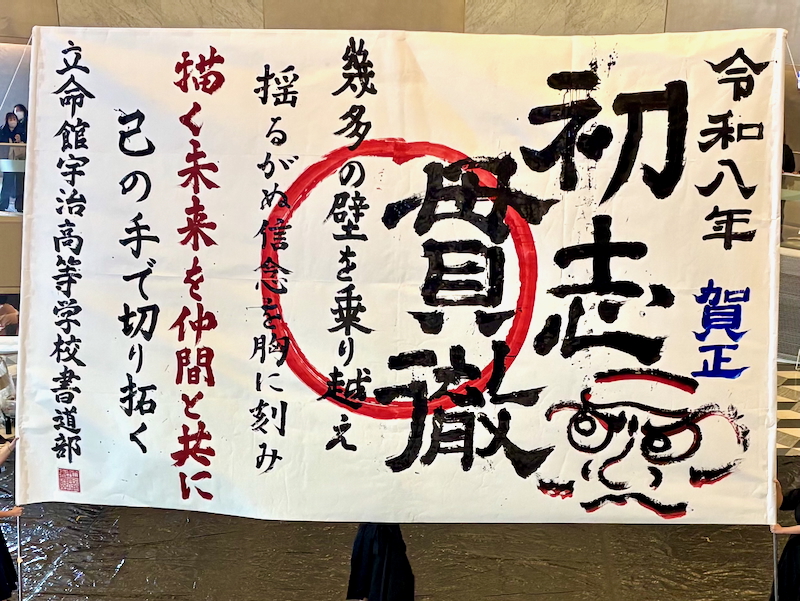 令和八年 賀正
初志
貫徹
幾多の壁を乗り越え
揺るがぬ信念を胸に刻み
描く未来を仲間と共に
己の手で切り拓く
立命館宇治高等学校書道部